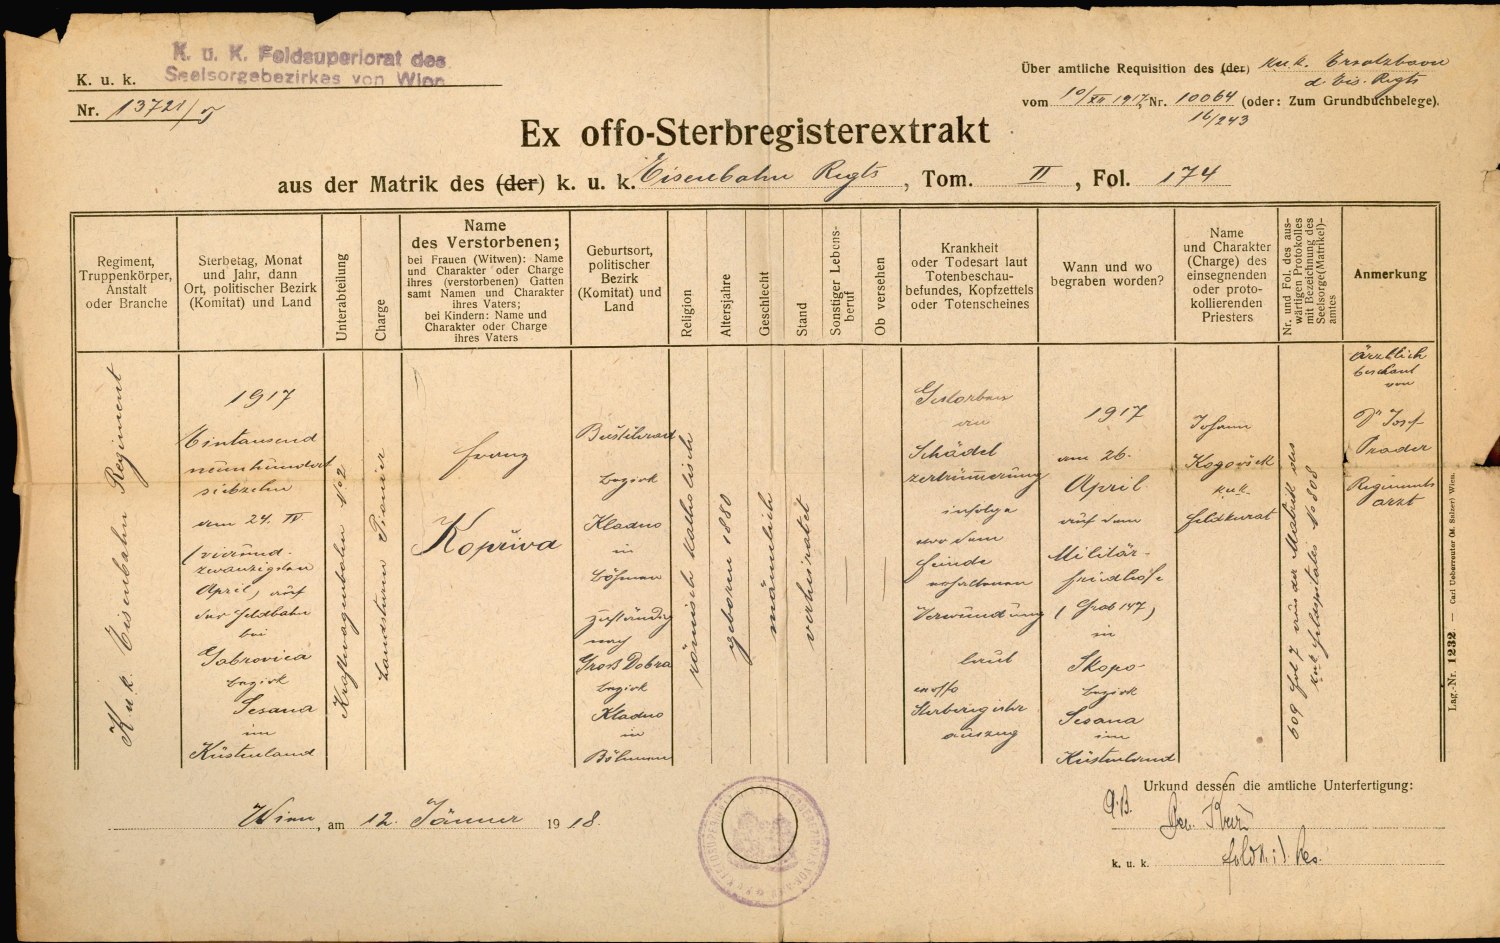 K. u. K. Feldsuperiorat des
Seelsorgebezirkes von Wien
K. u. k.
Nr. 13721/
Über amtliche Requisition des (der) k.u.k. Ersatzbaon
d. Eis. Regts
vom 10/XII 1917, Nr. 10064 (oder: Zum Grundbuchbelege).
16/243
Ex offo-Sterbregisterextrakt
aus der Matrik des (der) k. u. k. Eisenbahn Regts, Tom. II, Fol. 174
Regiment,
Truppenkörper,
Anstalt
oder Branche
Sterbetag, Monat
und Jahr, dann
Ort, politischer Bezirk
(Komitat) und Land
Unterabteilung
Charge
Name
des Verstorbenen;
bei Frauen (Witwen): Name
und Charakter oder Charge
ihres (verstorbenen) Gatten
samt Namen und Charakter
ihres Vaters;
bei Kindern: Name und
Charakter oder Charge
ihres Vaters
Geburtsort,
politischer
Bezirk
(Komitat) und
Land
Religion
Altersjahre
Geschlecht
Stand
Sonstiger Lebens-
beruf
Ob versehen
Krankheit
oder Todesart laut
Totenbeschau-
befundes, Kopfzettels
oder Totenscheines
Wann und wo
begraben worden?
Name
und Charakter
(Charge) des
einsegnenden
oder proto-
kollierenden
Priesters
Nr. und Fol. des aus-
wärtigen Protokolles
mit Bezeichnung des
Seelsorge(Matrikel)-
amtes
Anmerkung
K. u. k. Eisenbahn Regiment
1917
Eintausend
neunhundert
siebzehn
am 24. IV
(vierund-
zwanzigsten
April) auf
der Feldbahn
bei
Gabrovica
bezirk
Sesana
im
Küstenland
Kraftwagenbahn No 2
Landsturm Pionier
Franz
Kopřiva
Buštěhrad
bezirk
Kladno
in
Böhmen
zuständig
nach
Gross Dobra
bezirk
Kladno
in
Böhmen
römisch katholisch
geboren 1880
männlich
verheiratet
Gestorben
an
Schädel
zertrümmerung
infolge
vor dem
Feinde
erhaltenen
Verwundung
laut
exoffo
Sterberegister
auszug
1917
am 26.
April
auf dem
Militär-
friedhofe
(Grab 147)
in
Skopo
bezirk
Sesana
im
Küstenland
Johann
Kogovšek
k.u.k.
Feldkurat
609 fol 7 aus der Matrik des
k.u.k. Feldspitales No 808
ärztlich
beschaut
von
Dr Josef
Prader
Regiments
arzt
Wien, am 12. Jänner 1918.
Urkund dessen die amtliche Unterfertigung:
k. u. k.
Lag.-Nr. 1232. — Carl Ueberreuter (M. Salzer) Wien.